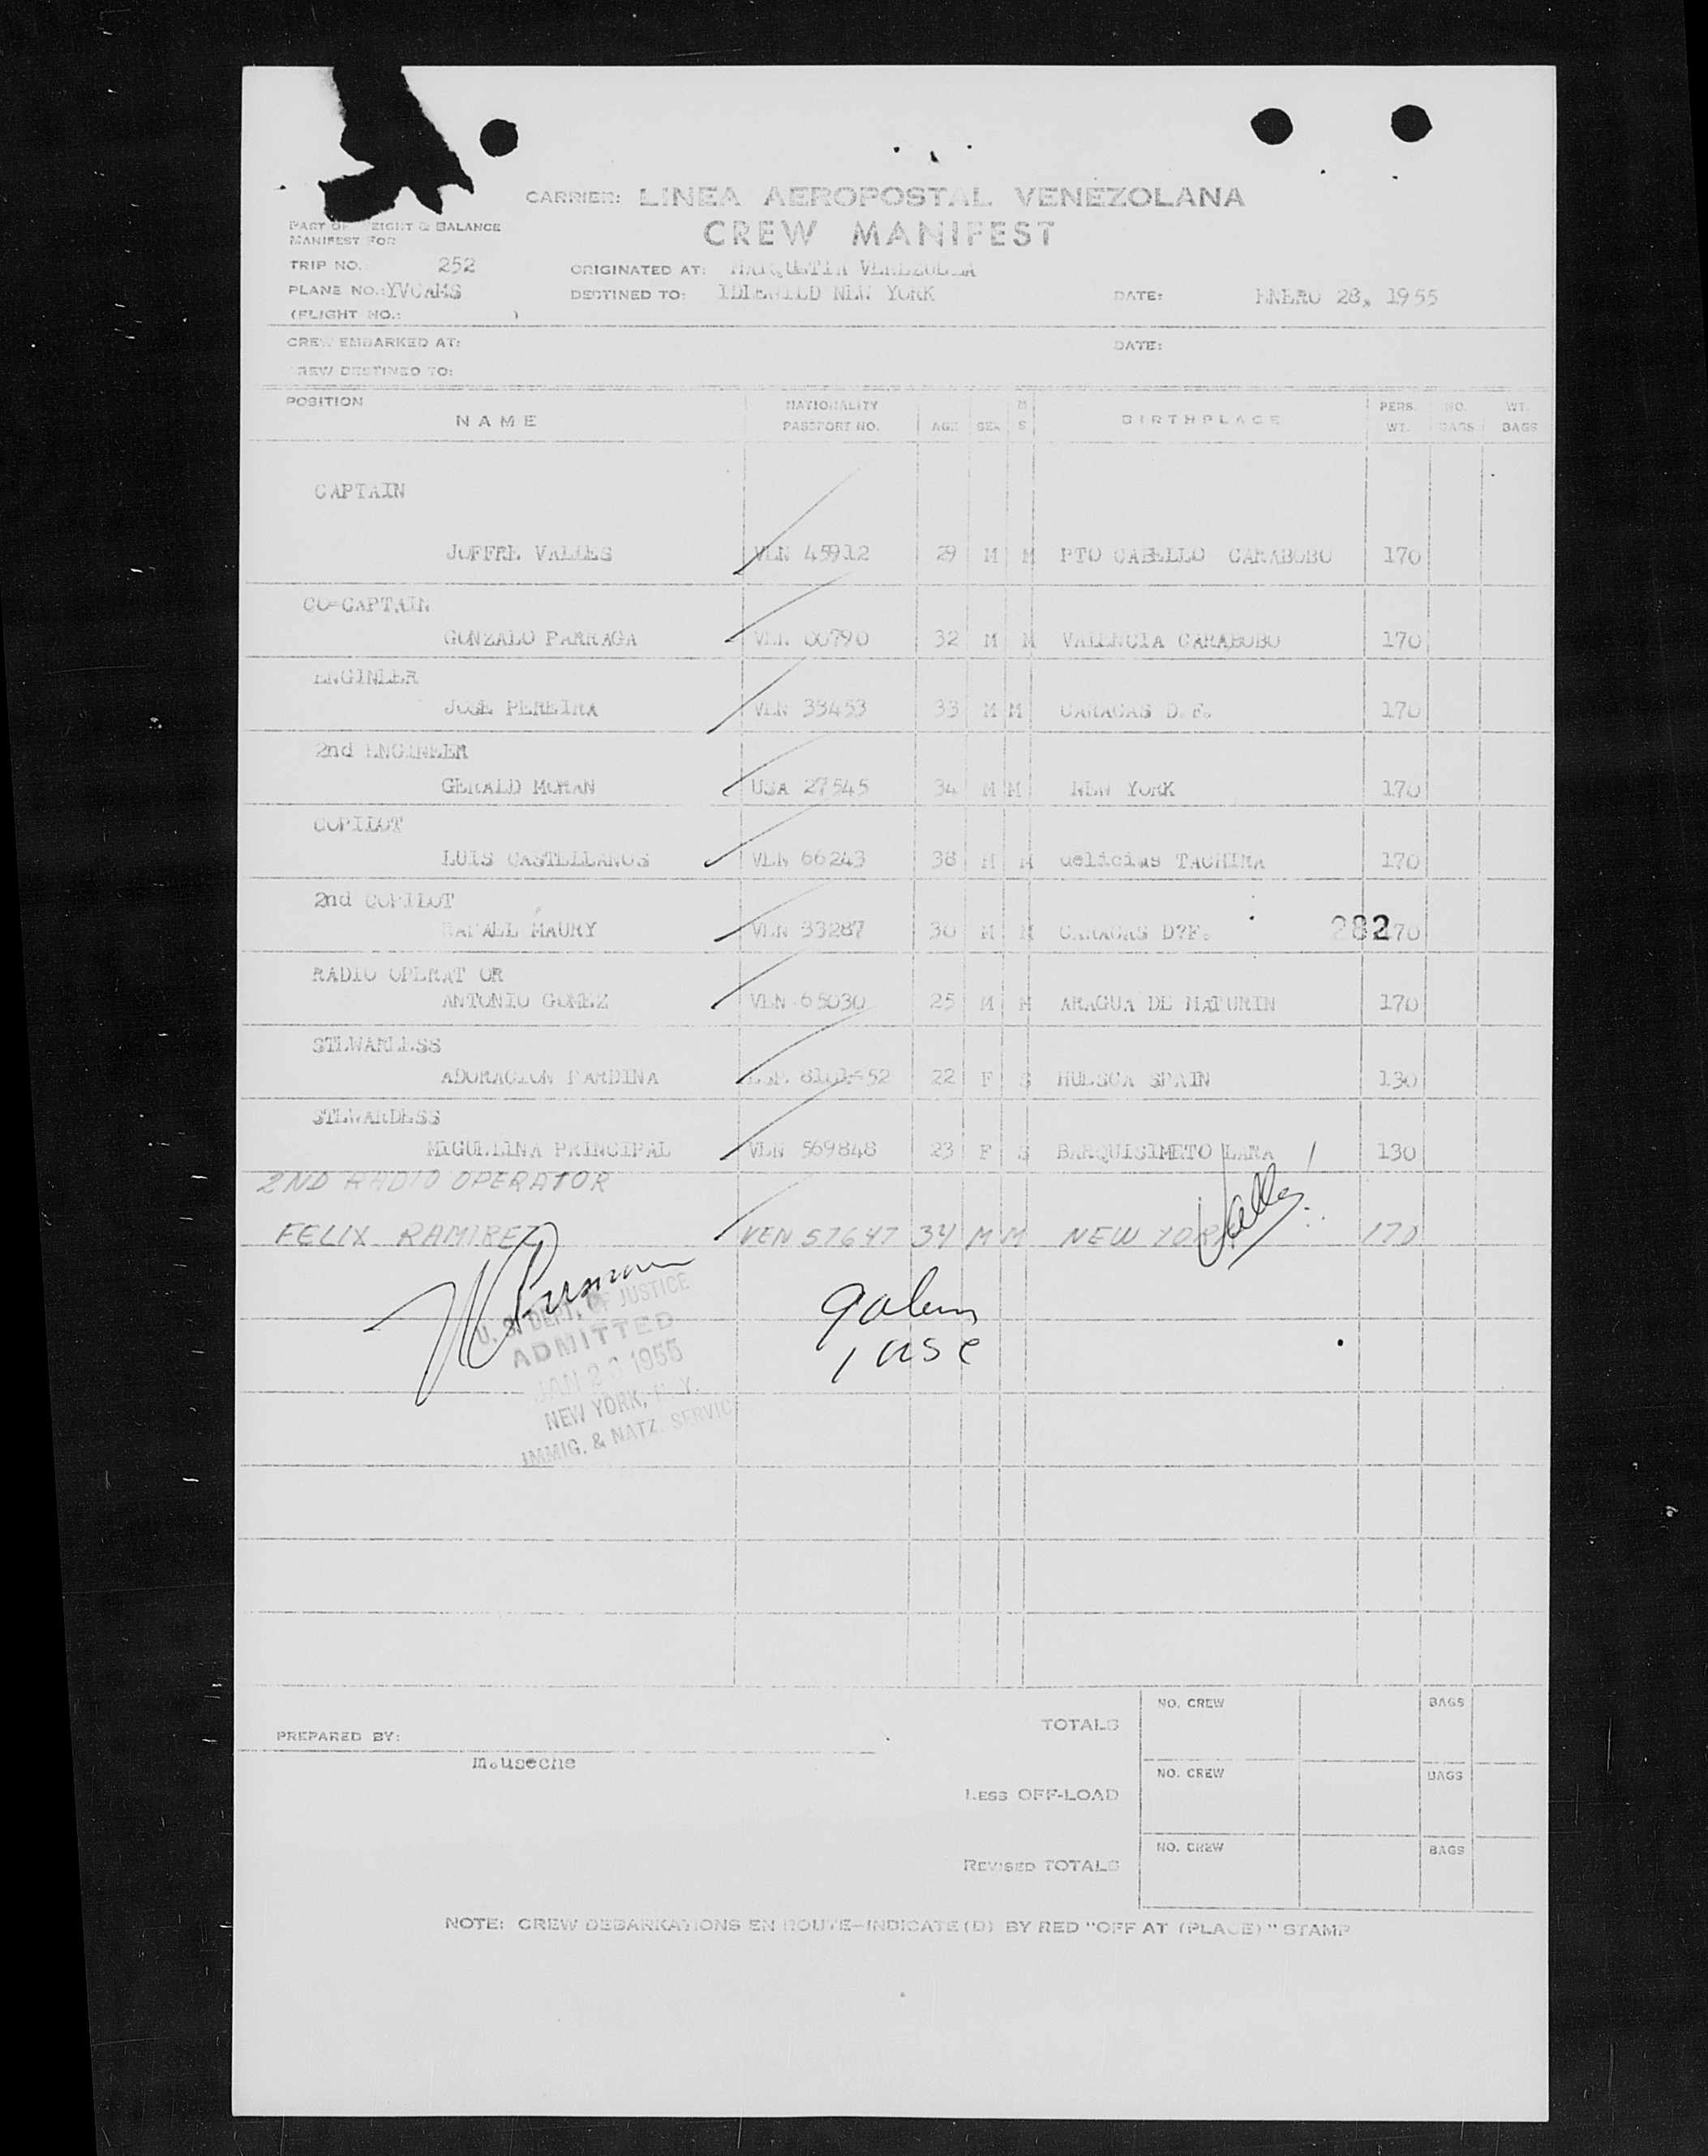 CARRIER: LINEA AEROPOSTAL VENEZOLANA
CREW MANIFEST
PART OF WEIGHT & BALANCE
MANIFEST FOR
TRIP NO. 252
ORIGINATED AT: MAIQUETIA VENEZUELA
PLANE NO.: YVCAMS
DESTINED TO: IDLEWILD NEW YORK
DATE: ENERO 28, 1955
(FLIGHT NO.: )
CREW EMBARKED AT:
DATE:
CREW DESTINED TO:
POSITION
NAME
NATIONALITY
PASSPORT NO.
AGE
SEX
M
S
BIRTHPLACE
PERS.
WT.
NO.
BAGS
WT.
BAGS
CAPTAIN
JOFFRE VALLES VEN 45912 29 M M PTO CABELLO CARABOBO 170
CO-CAPTAIN
GONZALO PARRAGA VEN 00790 32 M M VALENCIA CARABOBO 170
ENGINEER
JOSE PEREIRA VEN 33453 33 M M CARACAS D.F. 170
2nd ENGINEER
GERALD MORAN USA 27545 34 M M NEW YORK 170
COPILOT
LUIS CASTELLANOS VEN 66243 38 M M delicias TACHIRA 170
2nd COPILOT
RAFAEL MAURY VEN 33287 30 M M CARACAS D?F. 170
282
RADIO OPERAT OR
ANTONIO GOMEZ VEN 65030 25 M M ARAGUA DE MATURIN 170
STEWARDESS
ADORACION PARDINA ESP. 52 22 F S HUESCA SPAIN 130
STEWARDESS
MIGUELINA PRINCIPAL VEN 569848 23 F S BARQUISIMETO LARA 130
2ND RADIO OPERATOR
FELIX RAMIREZ VEN 57647 34 M M NEW YORK 170
Valles
U. S. DEPT. OF JUSTICE
ADMITTED
JAN 28 1955
NEW YORK, N. Y.
IMMIG. & NATZ. SERVICE
PREPARED BY:
m.useche
TOTALS
NO. CREW
BAGS
LESS OFF-LOAD
NO. CREW
BAGS
REVISED TOTALS
NO. CREW
BAGS
NOTE: CREW DEBARKATIONS EN ROUTE-INDICATE (D) BY RED "OFF AT (PLACE)" STAMP